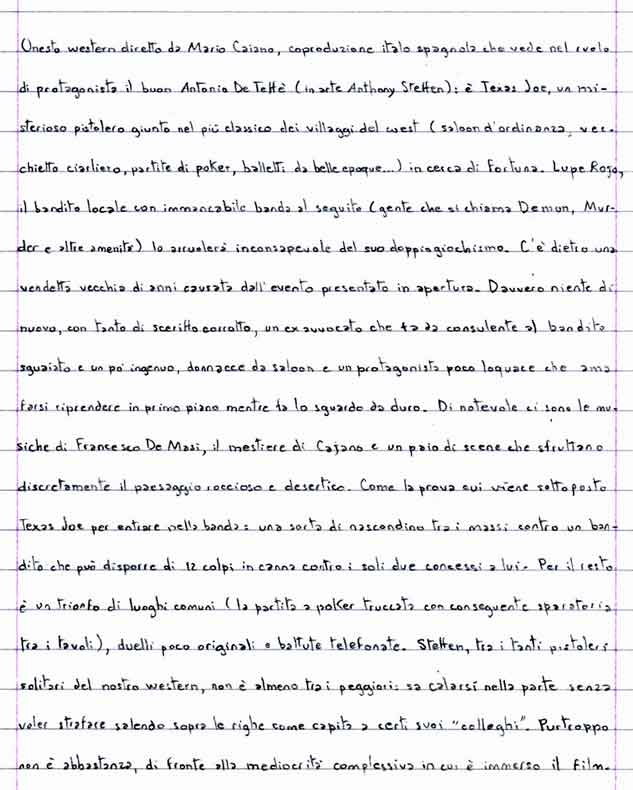 Onesto western diretto da Mario Caiano, coproduzione italo spagnola che vede nel ruolo
di protagonista il buon Antonio De Teffè (in arte Anthony Steffen): è Texas Joe, un mi-
sterioso pistolero giunto nel più classico dei villaggi del west (saloon d'ordinanza, vec-
chietto ciarliero, partite di poker, balletti da belle epoque...) in cerca di fortuna. Lupe Rojo,
il bandito locale con immancabile banda al seguito (gente che si chiama Demon, Mur-
der e altre amenità) lo arruolerà inconsapevole del suo doppiogiochismo. C'è dietro una
vendetta vecchia di anni causata dall'evento presentato in apertura. Davvero niente di
nuovo, con tanto di sceriffo corrotto, un ex avvocato che fa da consulente al bandito
sguaiato e un po' ingenuo, donnacce da saloon e un protagonista poco loquace che ama
farsi riprendere in primo piano mentre fa lo sguardo da duro. Di notevole ci sono le mu-
siche di Francesco De Masi, il mestiere di Cajano e un paio di scene che sfruttano
discretamente il paesaggio roccioso e desertico. Come la prova cui viene sottoposto
Texas Joe per entrare nella banda: una sorta di nascondino tra i massi contro un ban-
dito che può disporre di 12 colpi in canna contro i soli due concessi a lui. Per il resto
è un trionfo di luoghi comuni (la partita a poker truccata con conseguente sparatoria
tra i tavoli), duelli poco originali e battute telefonate. Steffen, tra i tanti pistoleri
solitari del nostro western, non è almeno tra i peggiori: sa calarsi nella parte senza
voler strafare salendo sopra le righe come capita a certi suoi "colleghi". Purtroppo
non è abbastanza, di fronte alla mediocrità complessiva in cui è immerso il film.